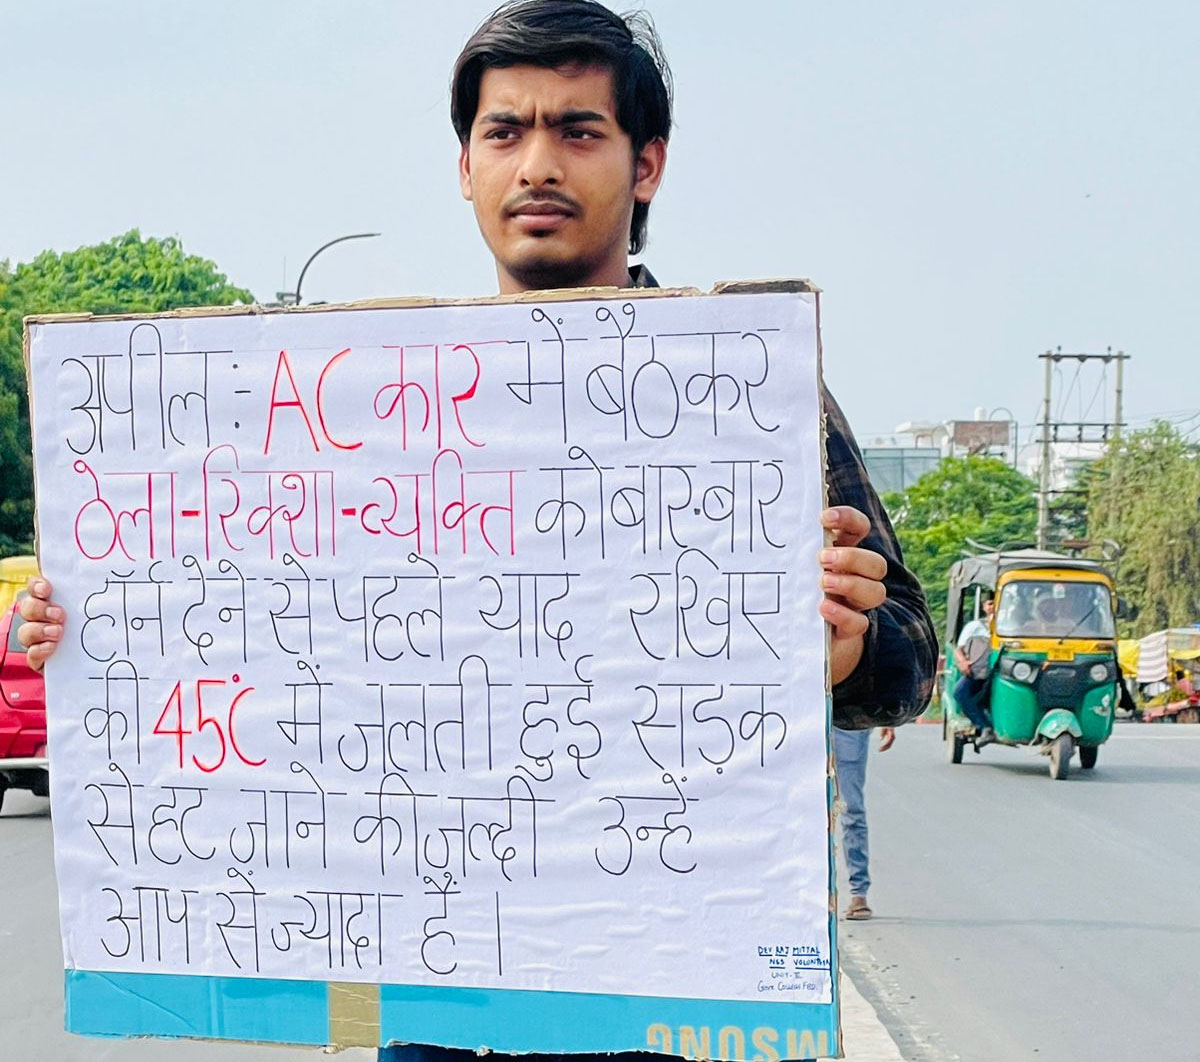 अपील :- AC कार में बैठकर
ठेला-रिक्शा-व्यक्ति को बार-बार
हॉर्न देने से पहले याद रखिए
की 45℃ में जलती हुई सड़क
से हट जाने की जल्दी उन्हें
आप सें ज्यादा हैं ।
DEV RAJ MITTAL
NSS VOLUNTEER
UNIT-II
Govt College FBD.
SAMSUNG